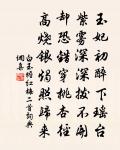 玉妃初醉下瑶台
紫雾深深拨不开
却恐错穿桃杏径
高烧银烛照归来
白玉蟾红梅二首词典
佩集